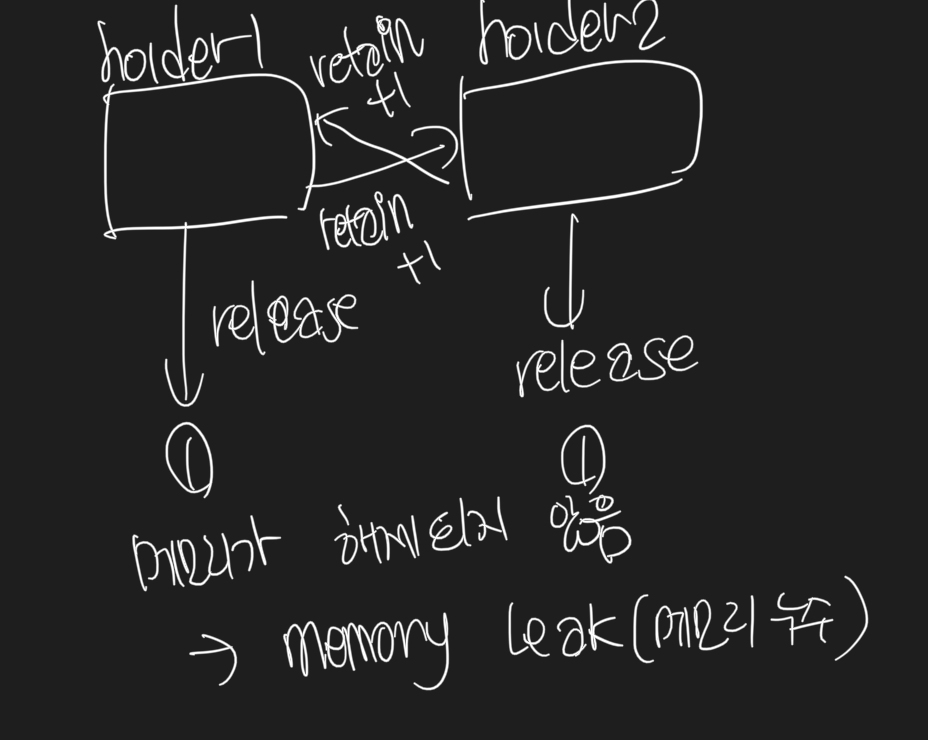 holder1
retain
+1
holder2
retain
+1
release
release
①
①
메모리가 해제되지 않음
→ memory leak (메모리 누수)